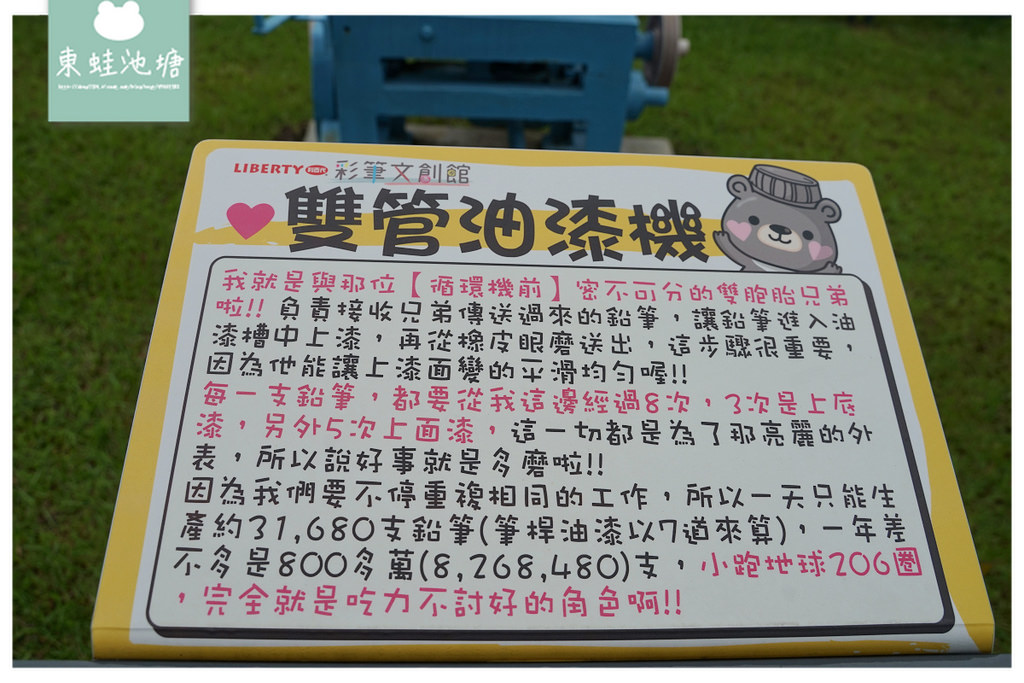 東蛙池塘
LIBERTY 利百代 彩筆文創館
雙管油漆機
我就是與那位【循環機前】密不可分的雙胞胎兄弟
啦!! 負責接收兄弟傳送過來的鉛筆，讓鉛筆進入油
漆槽中上漆，再從橡皮眼磨送出，這步驟很重要，
因為他能讓上漆面變的平滑均勻喔!!
每一支鉛筆，都要從我這邊經過8次，3次是上底
漆，另外5次上面漆，這一切都是為了那亮麗的外
表，所以說好事就是多磨啦!!
因為我們要不停重複相同的工作，所以一天只能生
產約31,680支鉛筆(筆桿油漆以7道來算)，一年差
不多是800多萬(8,268,480)支，小跑地球206圈
，完全就是吃力不討好的角色啊!!